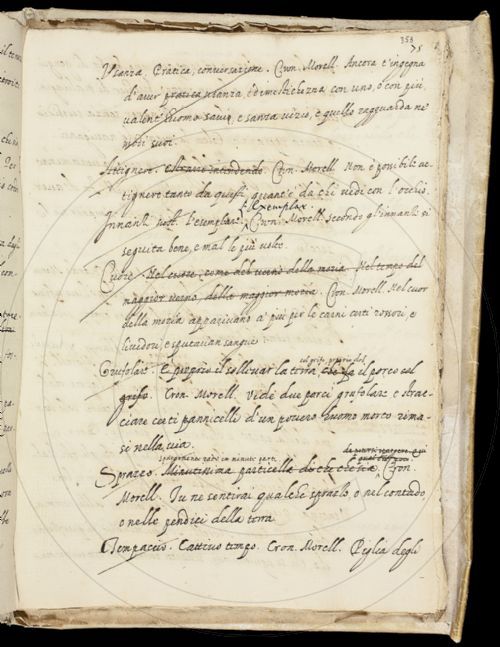 358
75
Usanza. Pratica, conversazione. Cron. Morell. Ancora t'ingegna
d'aver pratica usanza, e dimestichezza con uno, o con più
valenti uomo savio, e sanza vizio, e quello ragguarda ne
modi suoi.
Attignere. Cron. Morell. Non è possibile at-
tignere tanto da questi, quant'è da chi vide con l'occhio.
L'exemplar.
Innanti post. l'esemplare. Cron. Morell. Secondo gl'innanti si
seguita bene, e mal le più volte.
Cuore. Nel cuore, come nel cuore della moria. Nel tempo del
maggior vigore, della maggior moria. Cron. Morell. Nel cuor
della moria apparivano a' più per le carni certi rossori, e
lividori, e sputavan sangue
col grifo, proprio del
Grufolare. È proprio il sollevar la terra, che fa il porco col
grifo. Cron. Morell. Vide due porci grufolare e strac-
ciare certi pannicelli d'un povero huomo morto rima-
si nella via.
Spargimento raro in minute parti
Sprazzo. Minutissima particella Cron.
Morell. Tu ne sentirai qualche sprazzo, o nel contado,
o nelle pendici della terra
Tempaccio. Cattivo tempo. Cron. Morell. Piglia degli